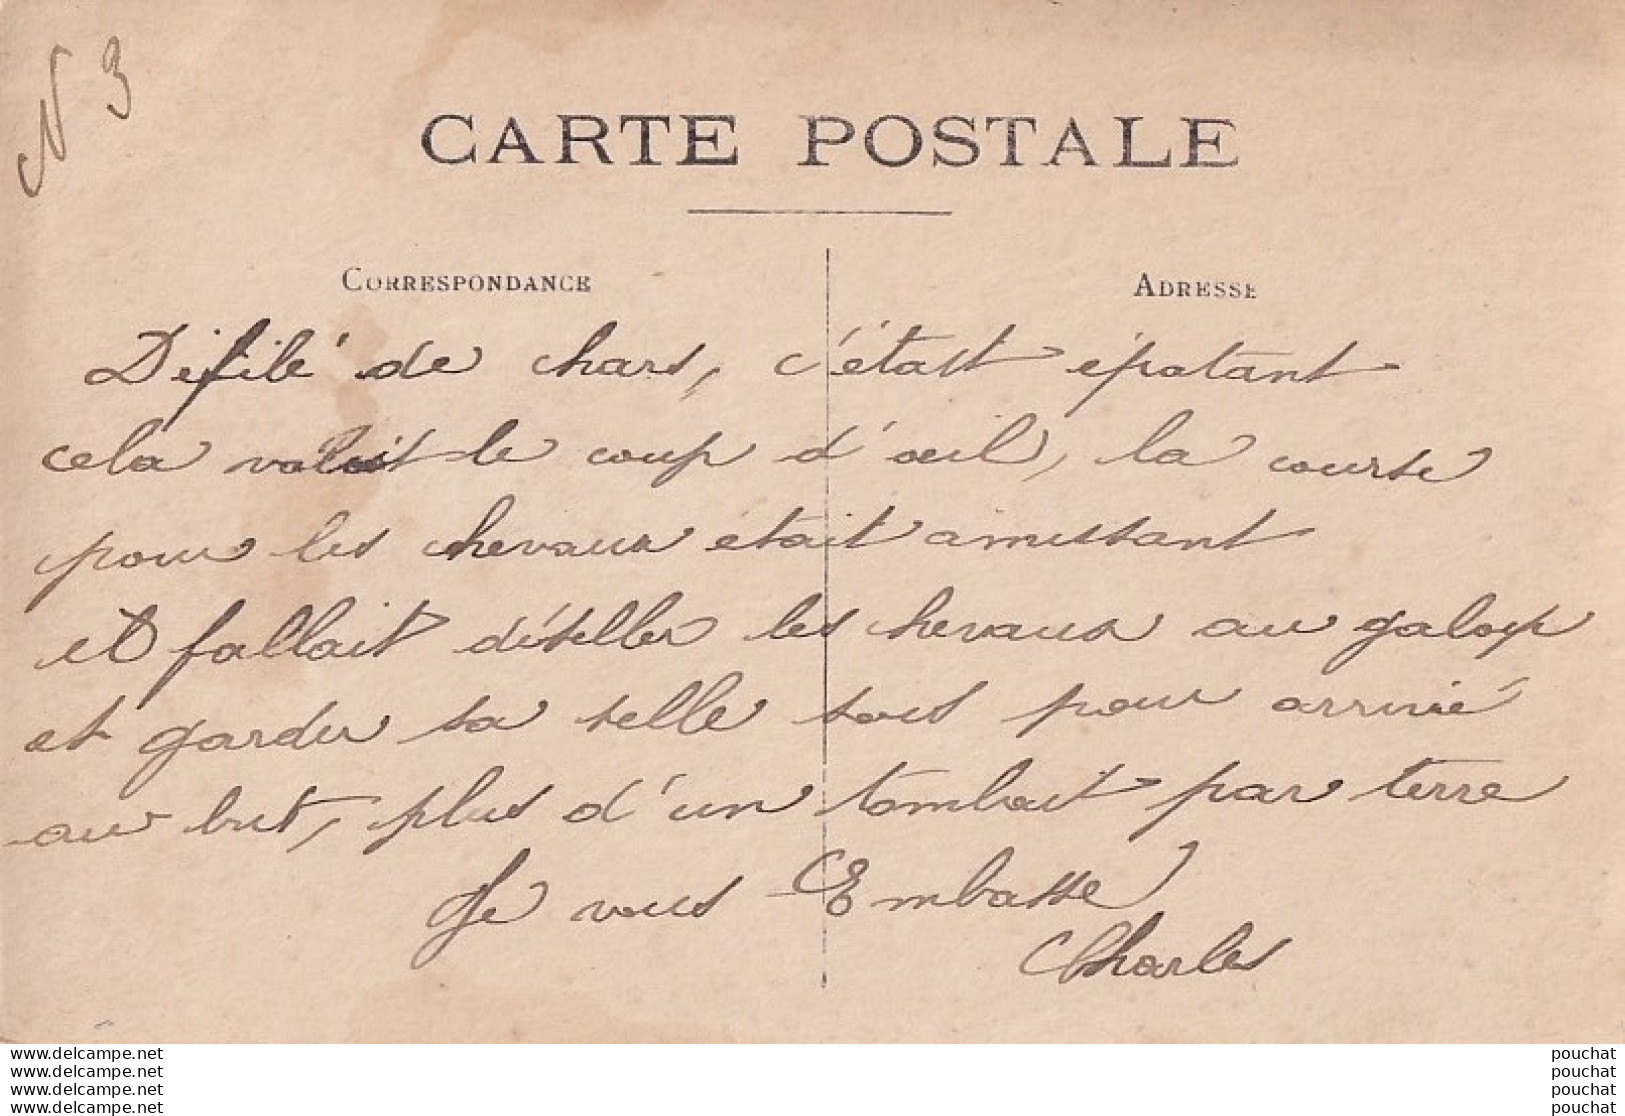 N 3
CARTE POSTALE
CORRESPONDANCE
ADRESSE
Défilé de chars, c'étast épatant
cela valait le coup d'œil, la course
pour les chevaux était amussant
et fallait déseller les chevaux au galop
et garder sa selle sous pour arrivé
au but, plus d'un tombait par terre
Je vous Embasse
Charles
www.delcampe.net
www.delcampe.net
www.delcampe.net
www.delcampe.net
pouchat
pouchat
pouchat
pouchat